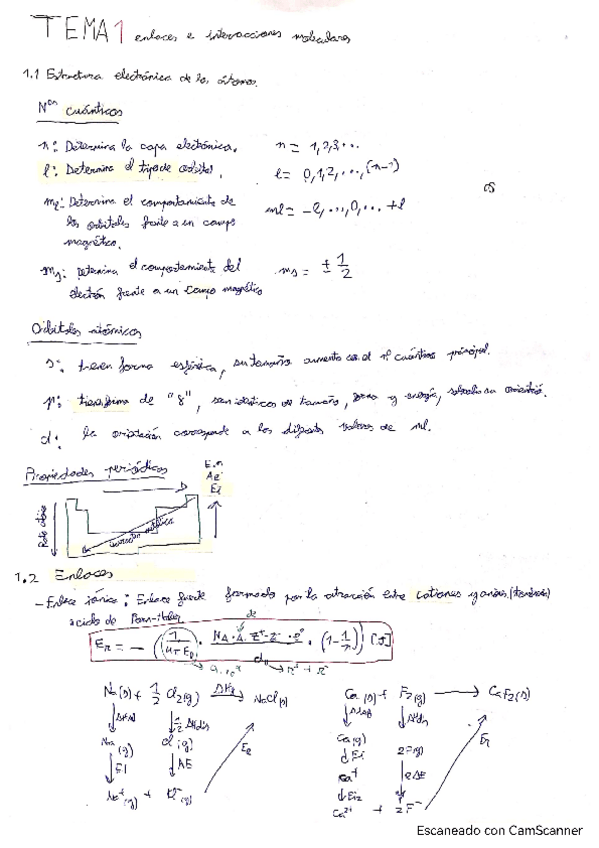 TEMA 1 enlaces e interacciones moleculares
1.1 Estructura electrónica de los átomos.
Nos cuánticos
n: Determina la capa electrónica. n = 1,2,3...
l: Determina el tipo de orbital. l = 0,1,2,...,(n-1)
ml: Determina el comportamiento de ml = -l,...,0,...+l
los orbitales frente a un campo
magnético.
ms: Determina el comportamiento del ms = ± 1/2
electrón frente a un campo magnético
Orbitales atómicos
s: tienen forma esférica, su tamaño aumenta con el nº cuántico principal.
p: tienen forma de "8", son idénticos de tamaño, forma y energía,
d: la orientación corresponde a los diferentes valores de ml.
Propiedades periódicas
E.n
Ae
Ei
Radio atómico
carácter metálico
1.2 Enlaces
- Enlace iónico: Enlace fuerte formado por la atracción entre cationes y aniones
ER = - (1/4πE0) · NA · A · Z+ · Z- · e² / d0 · (1 - 1/n) [J]
Na(s) + 1/2 Cl2(g) → NaCl(s)
Ca(s) + F2(g) → CaF2(s)
Na(g) Cl(g) ER
EI AE
Na+(g) + Cl-(g)
Ca(g) 2F(g) ER
Ei1
Ca+ 2AE
Ei2
Ca2+ + 2F-
Escaneado con CamScanner